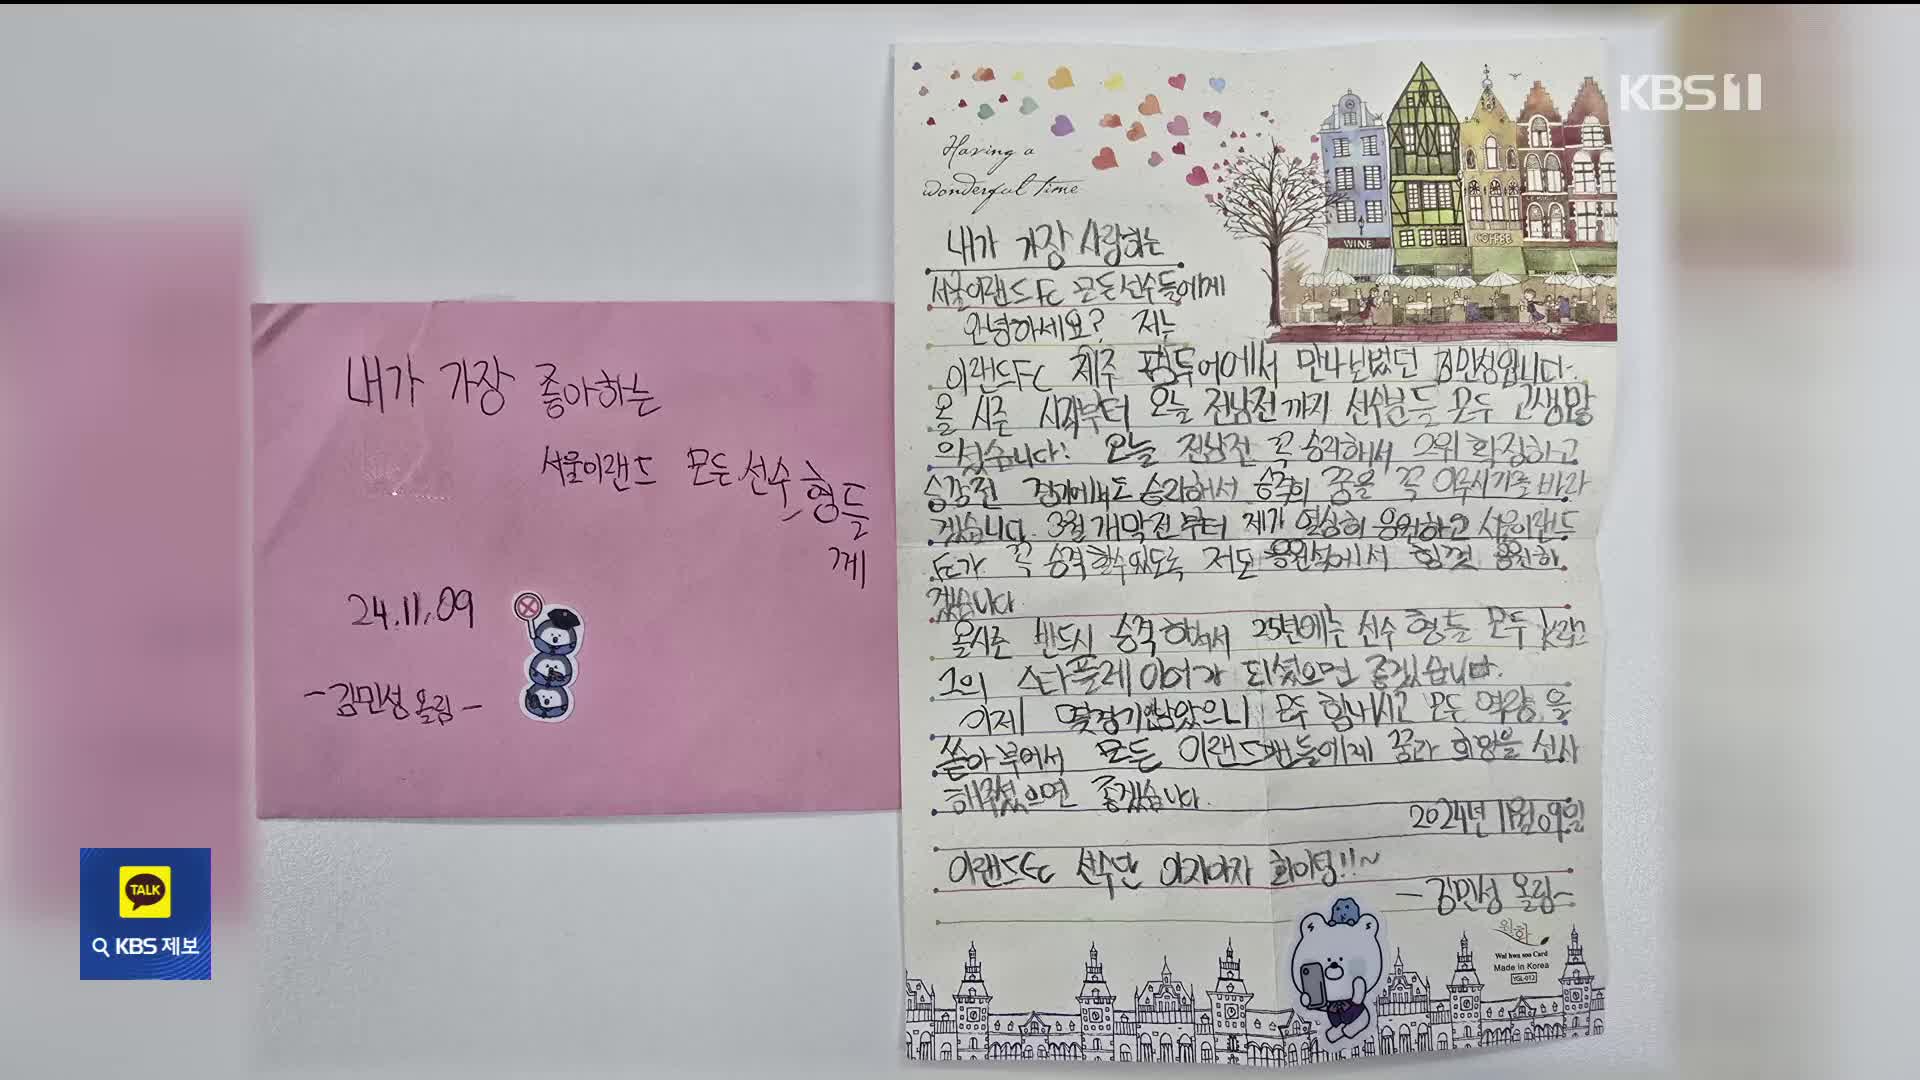 KBS 1
Having a
wonderful time
WINE
COFFEE
내가 가장 사랑하는
서울이랜드FC 모든선수들에게
안녕하세요? 저는
이랜드FC 제주 팸투어에서 만나뵀었던 김민성입니다.
올 시즌 시작부터 오늘 전남전까지 선수분들 모두 고생많
으셨습니다! 오늘 전남전 꼭 승리해서 2위 확정하고
승강전 경기에서도 승리해서 승격의 꿈을 꼭 이루시기를 바라
겠습니다. 3월 개막전부터 제가 열심히 응원하고 서울이랜드
FC가 꼭 승격할수있도록 저도 응원석에서 힘껏 응원하
겠습니다
올시즌 반드시 승격해서 25년에는 선수 형들 모두 K리그
1의 스타플레이어가 되셨으면 좋겠습니다.
이제 몇경기 안남았으니 모두 힘내시고 모든 역량을
쏟아부어서 모든 이랜드팬들에게 꿈과 희망을 선사
해주셨으면 좋겠습니다.
2024년 11월 09일
이랜드FC 선수단 아자아자 화이팅!!~
-김민성 올림-
원화
Wal hwa soo Card
Made in Korea
YGL-012
내가 가장 좋아하는
서울이랜드 모든 선수 형들
께
24.11.09
-김민성 올림-
TALK
KBS 제보